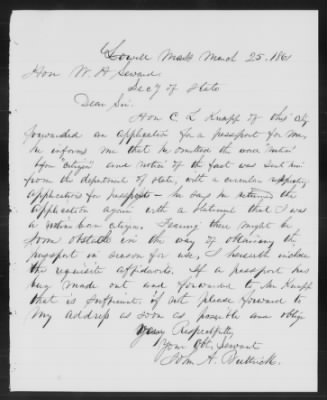 Lowell Mass March 25, 1861
Hon W. H. Seward
Sec'y of State
Dear Sir.
Hon C L Knapp of this City
forwarded an application for a passport for me,
he informs me that he omitted the word "native"
before "citizen" and notice of the fact was sent him
from the department of state, with a circular respecting
application for passports - he says he returned the
application again with a statement that I was
a native born citizen. Fearing there might be
some obstacle in the way of obtaining the
passport in season for use, I herewith inclose
the requisite affidavits. If a passport has
been made out and forwarded to Mr Knapp
that is sufficient, if not please forward to
my address as soon as possible and oblige
Yours Respectfully
Your Obt. Servant
A. Buttrick.